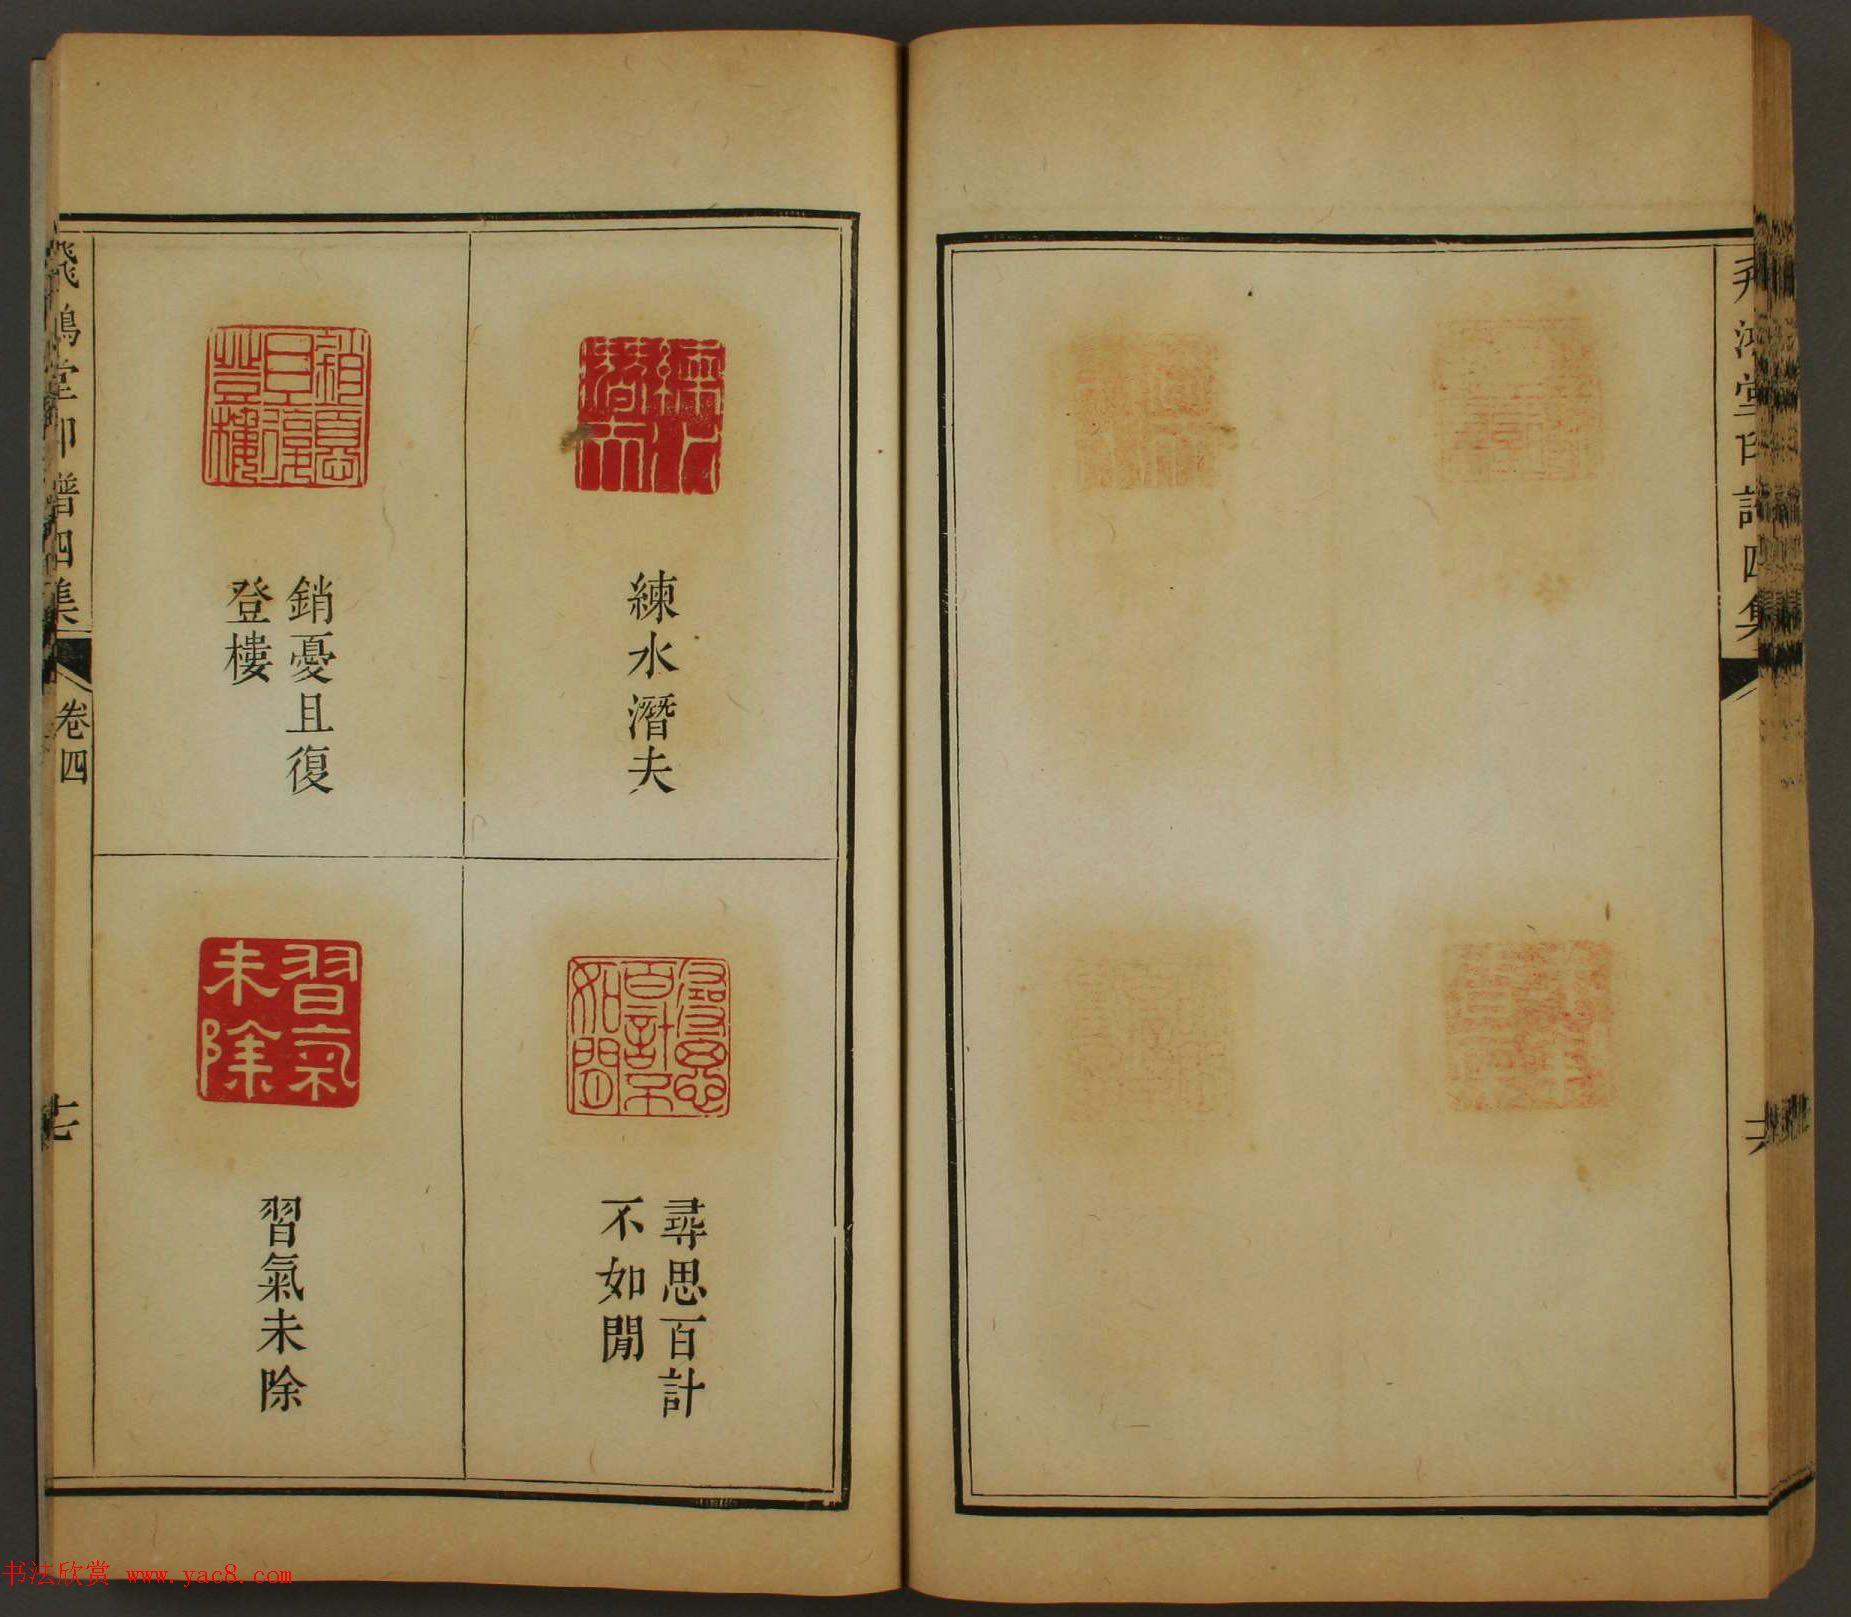 飛鴻堂印譜四集
練水潛夫
銷憂且復
登樓
尋思百計
不如閒
習氣未除
飛鴻堂印譜四集
卷四
七
书法欣赏 www.yac8.com